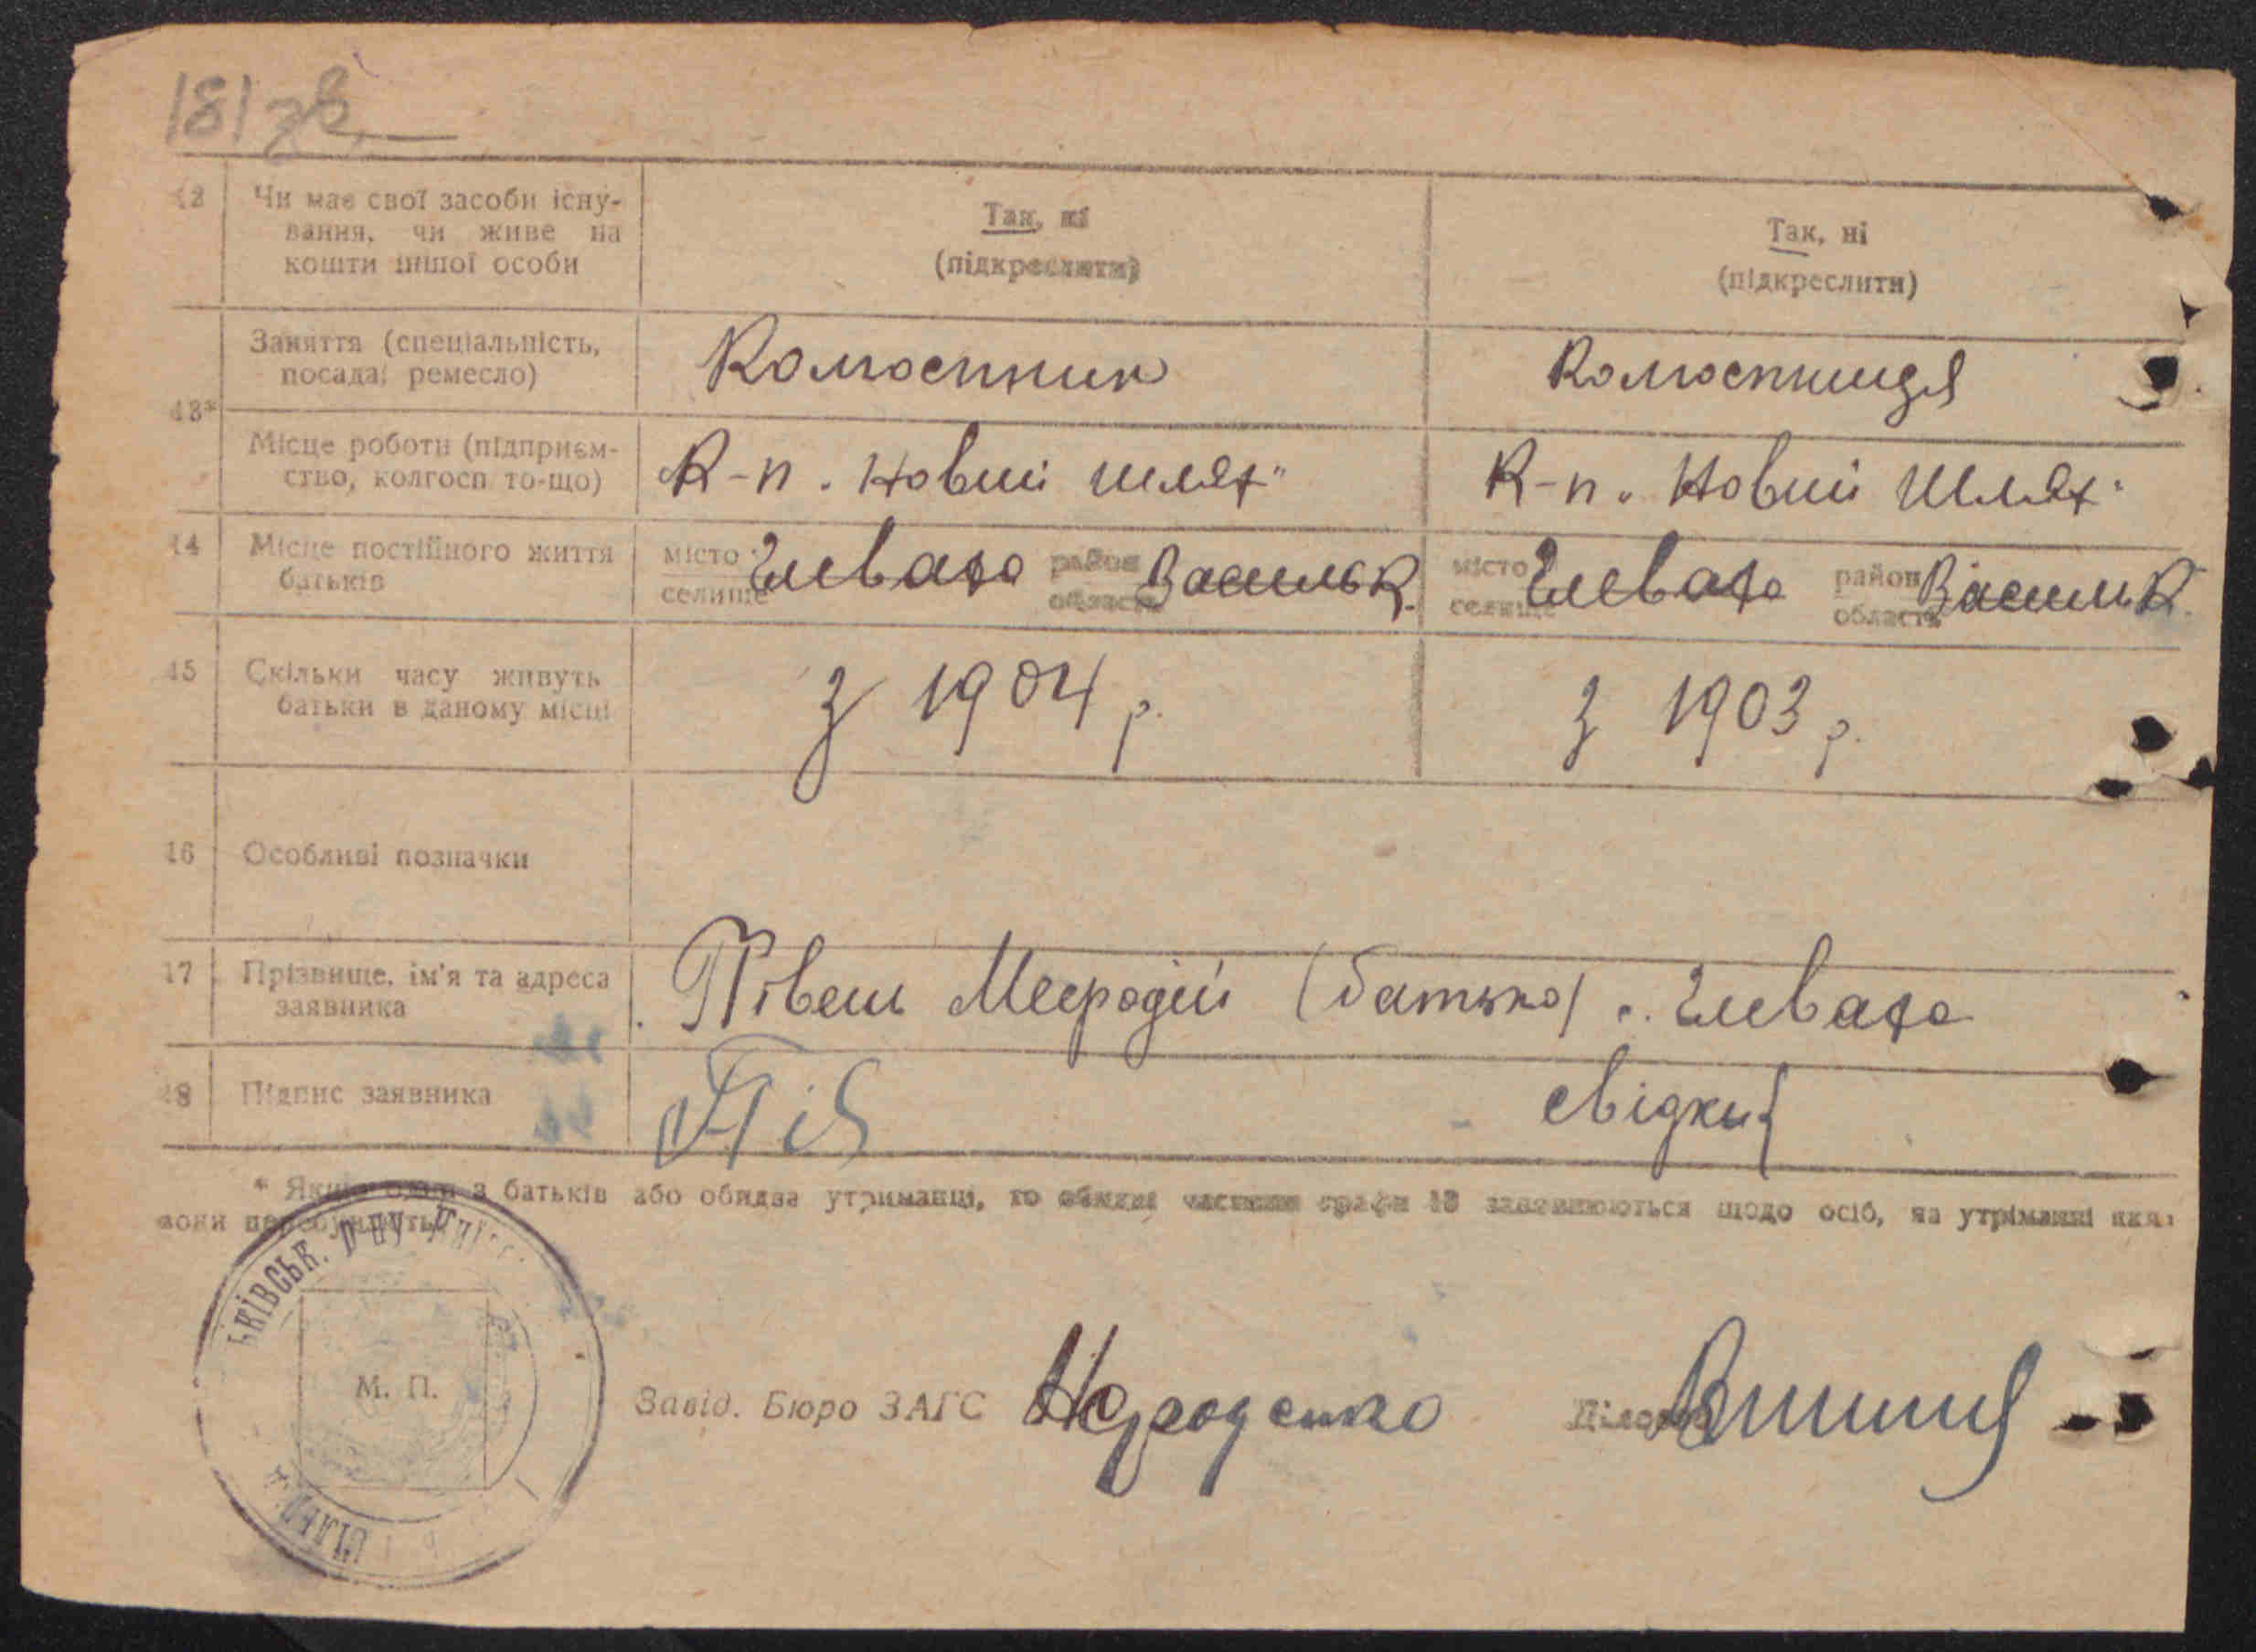 181 зв.
12 Чи має свої засоби існу-
вання, чи живе на
кошти іншої особи
Так, ні
(підкреслити)
Так, ні
(підкреслити)
13*
Заняття (спеціальність,
посада, ремесло)
Колгоспник
Колгоспниця
Місце роботи (підприєм-
ство, колгосп то-що)
К-п „Новий шлях"
К-п „Новий Шлях"
14 Місце постійного життя
батьків
місто
селище
Глеваха
район
область
Васильк.
місто
селище
Глеваха
район
область
Васильк.
15 Скільки часу живуть
батьки в даному місці
З 1904 р.
З 1903 р.
16 Особливі позначки
17 Прізвище, ім'я та адреса
заявника
Півень Мефодій (батько) с. Глеваха
18 Підпис заявника
Пів
свідки
* Якщо один з батьків або обидва утриманці, то обидві частини графи 13 заповнюються щодо осіб, на утріманні яких
вони перебувають.
ЬКІВСЬК.
М. П.
Завід. Бюро ЗАГС
Діловод